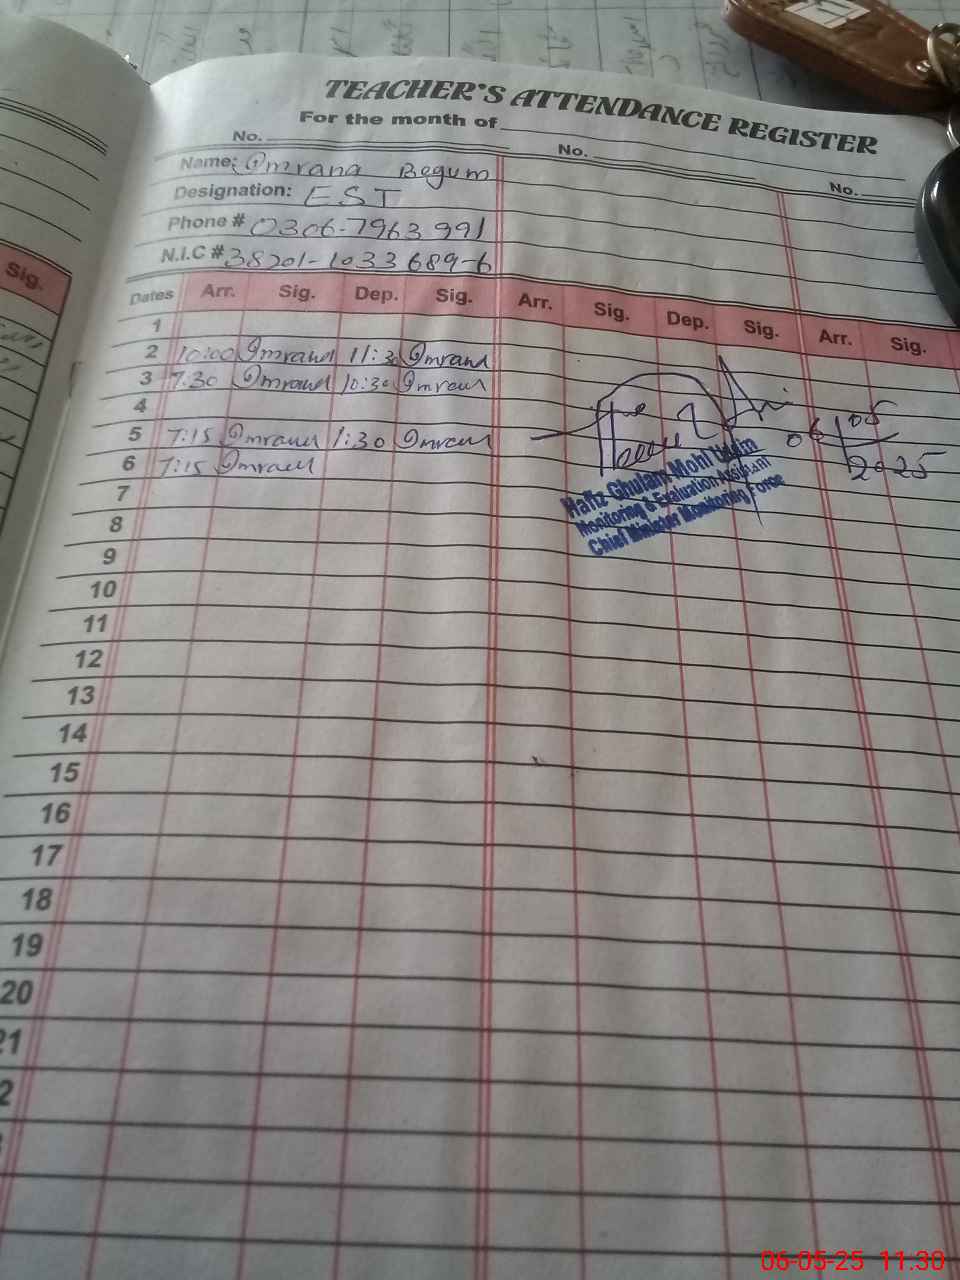 TEACHER'S ATTENDANCE REGISTER
For the month of
No. No. No.
Name: Imrana Begum
Designation: EST
Phone # 0306-7963991
N.I.C # 38201-1033689-6
Sig.
Dates Arr. Sig. Dep. Sig. Arr. Sig. Dep. Sig. Arr. Sig.
1
2 10:00 Imrana 11:30 Imrana
3 7:30 Imrana 10:30 Imrana
4
5 7:15 Imrana 1:30 Imrana
6 7:15 Imrana
06/05
2025
Hafiz Ghulam Mohi Uddin
Monitoring & Evaluation Assistant
Chief Minister Monitoring Force
7
8
9
10
11
12
13
14
15
16
17
18
19
20
21
2
06-05-25 11.30